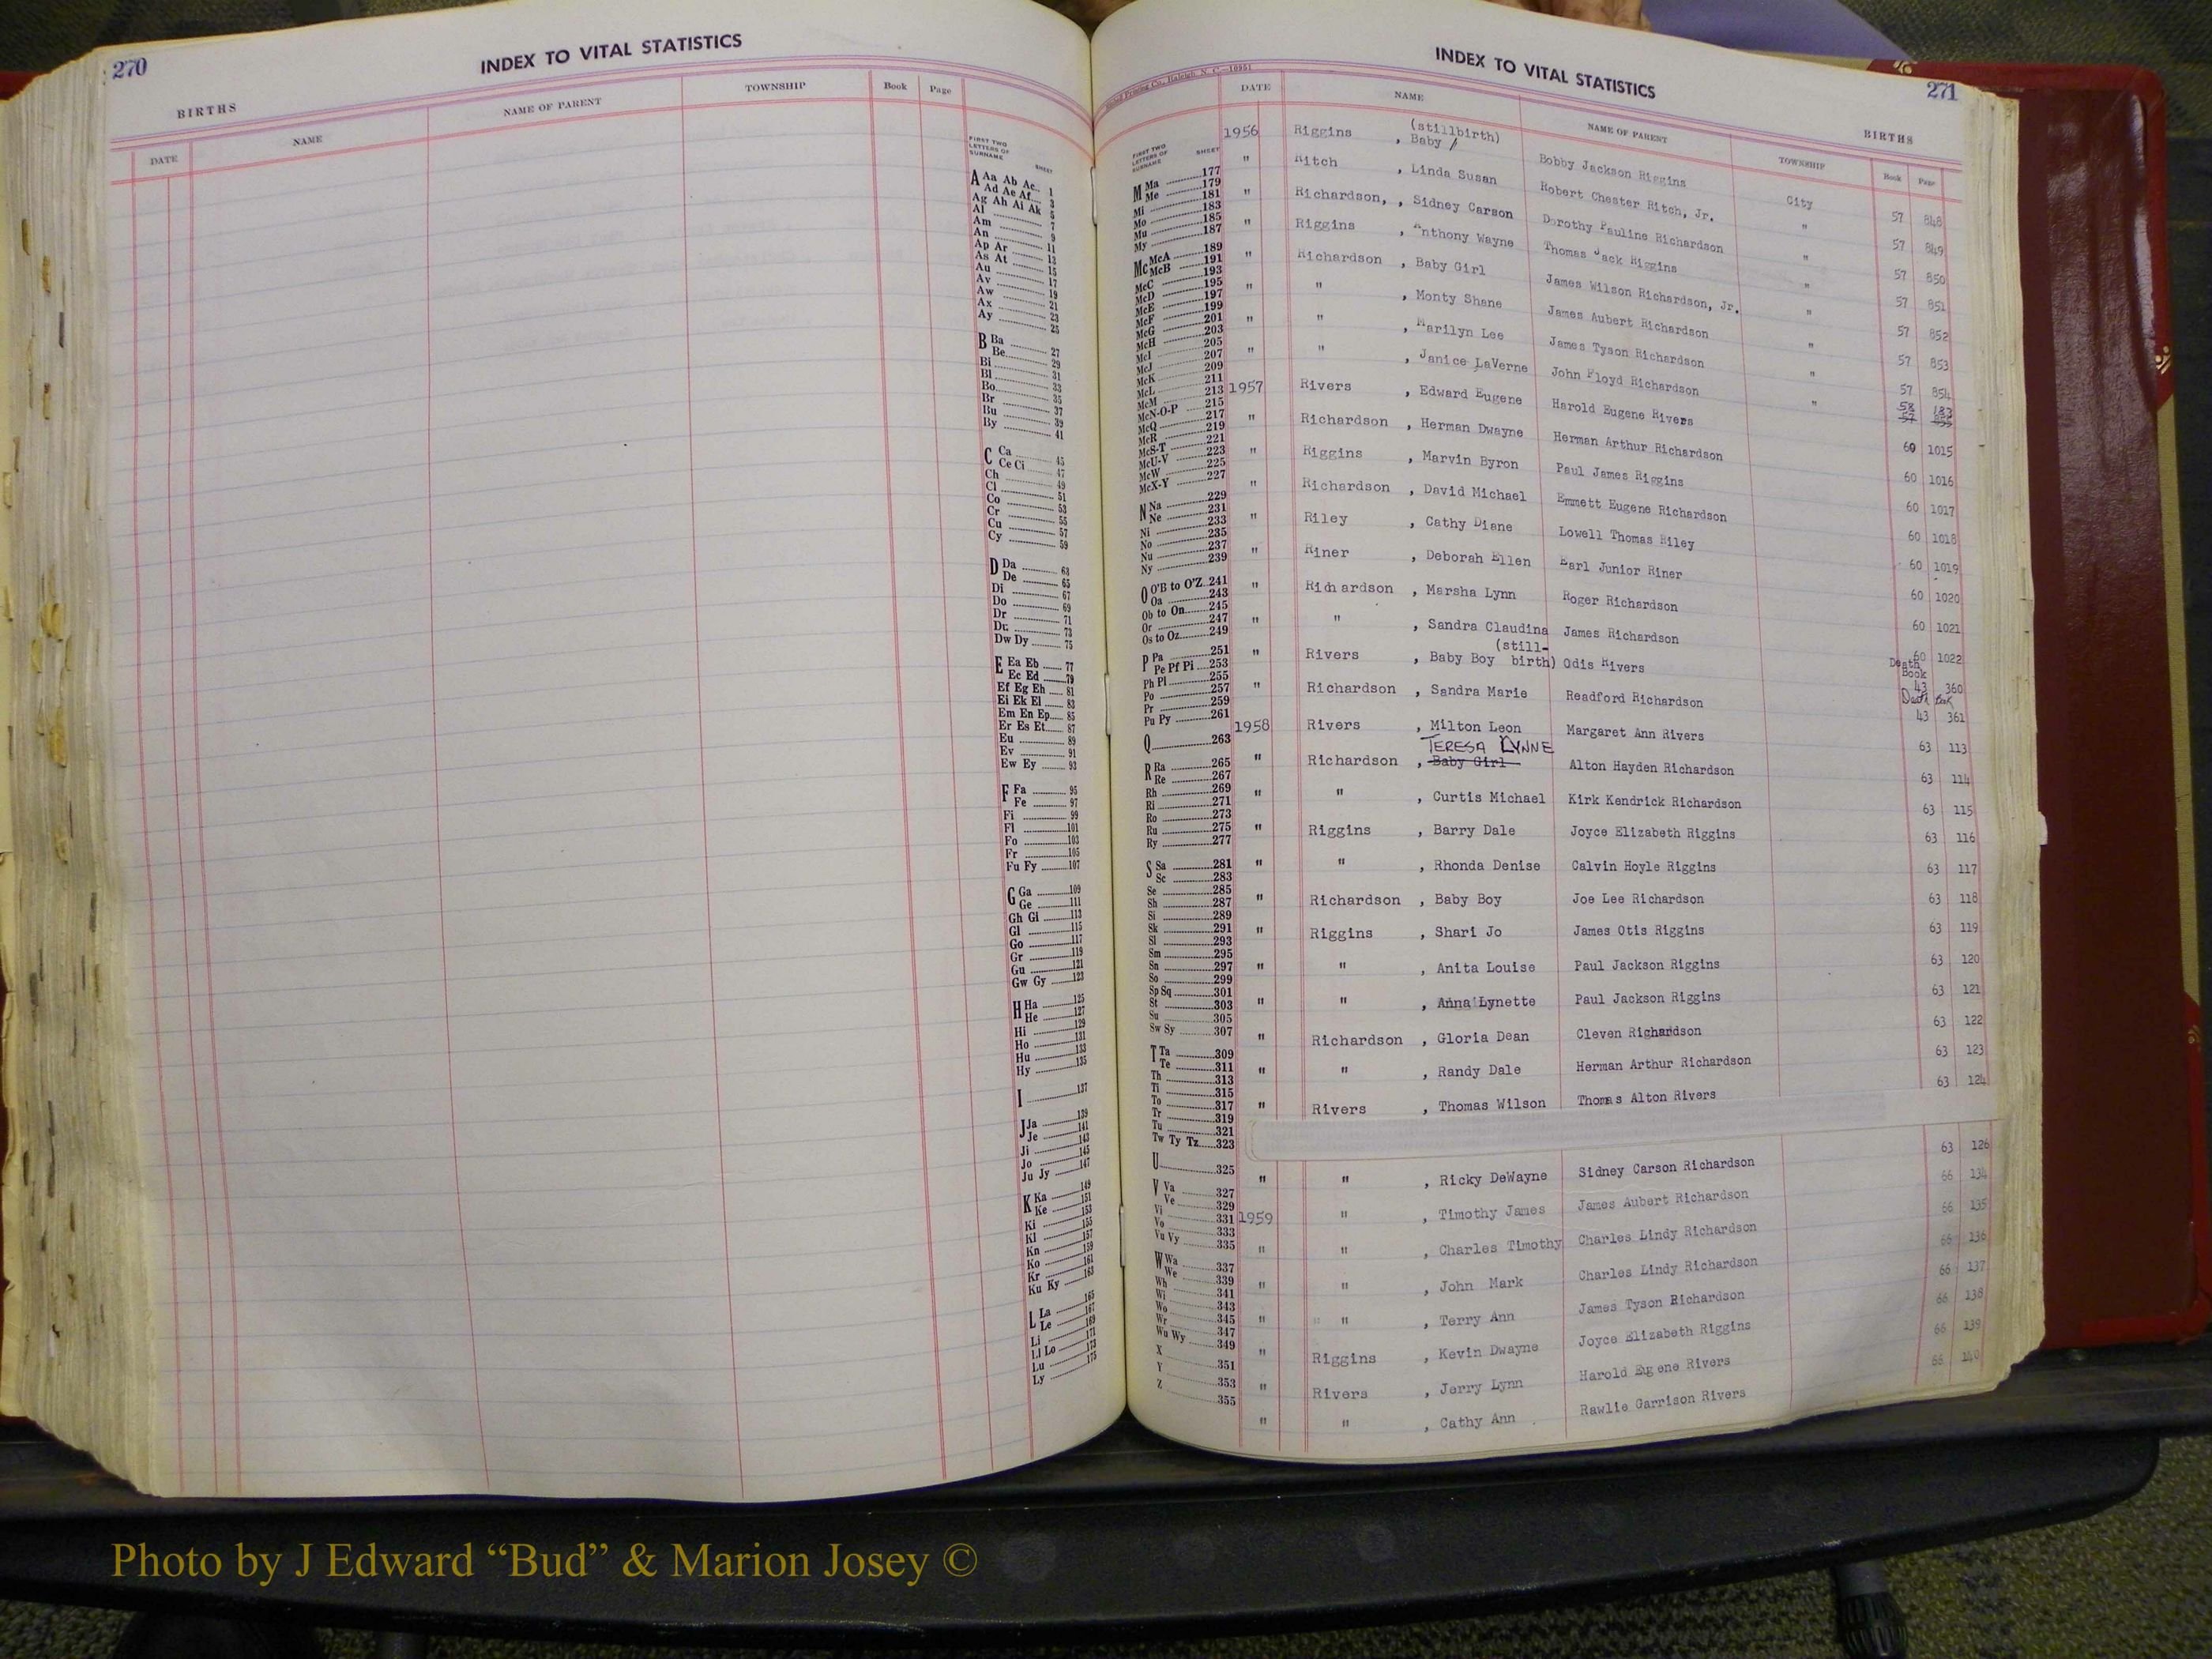 270
INDEX TO VITAL STATISTICS
BIRTHS
DATE NAME NAME OF PARENT TOWNSHIP Book Page
FIRST TWO LETTERS OF SURNAME SHEET
A Aa Ab Ac 1
Ad Ae Af 3
Ag Ah Ai Ak 5
Al 7
Am 9
An 11
Ap Ar 13
As At 15
Au 17
Av 19
Aw 21
Ax 23
Ay 25
B Ba 27
Be 29
Bi 31
Bl 33
Bo 35
Br 37
Bu 39
By 41
C Ca 45
Ce Ci 47
Ch 49
Cl 51
Co 53
Cr 55
Cu 57
Cy 59
D Da 63
De 65
Di 67
Do 69
Dr 71
Du 73
Dw Dy 75
E Ea Eb 77
Ec Ed 79
Ef Eg Eh 81
Ei Ek El 83
Em En Ep 85
Er Es Et 87
Eu 89
Ev 91
Ew Ey 93
F Fa 95
Fe 97
Fi 99
Fl 101
Fo 103
Fr 105
Fu Fy 107
G Ga 109
Ge 111
Gh Gi 113
Gl 115
Go 117
Gr 119
Gu 121
Gw Gy 123
H Ha 125
He 127
Hi 129
Ho 131
Hu 133
Hy 135
I 137
J Ja 139
Je 141
Ji 143
Jo 145
Ju Jy 147
K Ka 149
Ke 151
Ki 153
Kl 155
Kn 157
Ko 159
Kr 161
Ku Ky 163
L La 165
Le 167
Li 169
Ll Lo 171
Lu 173
Ly 175
INDEX TO VITAL STATISTICS
271
BIRTHS
DATE NAME NAME OF PARENT TOWNSHIP Book Page
FIRST TWO LETTERS OF SURNAME SHEET
M Ma 177
Me 179
Mi 181
Mo 183
Mu 185
My 187
Mc McA 189
McB 191
McC 193
McD 195
McE 197
McF 199
McG 201
McH 203
McI 205
McJ 207
McK 209
McL 211
McM 213
McN-O-P 215
McQ 217
McR 219
McS-T 221
McU-V 223
McW 225
McX-Y 227
N Na 229
Ne 231
Ni 233
No 235
Nu 237
Ny 239
O O'B to O'Z 241
Oa 243
Ob to On 245
Or 247
Os to Oz 249
P Pa 251
Pe Pf Pi 253
Ph Pl 255
Po 257
Pr 259
Pu Py 261
Q 263
R Ra 265
Re 267
Rh 269
Ri 271
Ro 273
Ru 275
Ry 277
S Sa 281
Sc 283
Se 285
Sh 287
Si 289
Sk 291
Sl 293
Sm 295
Sn 297
So 299
Sp Sq 301
St 303
Su 305
Sw Sy 307
T Ta 309
Te 311
Th 313
Ti 315
To 317
Tr 319
Tu 321
Tw Ty Tz 323
U 325
V Va 327
Ve 329
Vi 331
Vo 333
Vu Vy 335
W Wa 337
We 339
Wh 341
Wi 343
Wo 345
Wr 347
Wu Wy 349
X 351
Y 353
Z 355
1956 Riggins , Baby (stillbirth) Bobby Jackson Riggins City 57 848
" Ritch , Linda Susan Robert Chester Ritch, Jr. " 57 849
" Richardson, , Sidney Carson Dorothy Pauline Richardson " 57 850
" Riggins , Anthony Wayne Thomas Jack Riggins " 57 851
" Richardson , Baby Girl James Wilson Richardson, Jr. " 57 852
" " , Monty Shane James Aubert Richardson " 57 853
" " , Marilyn Lee James Tyson Richardson " 57 854
" " , Janice LaVerne John Floyd Richardson " 57 855 58 183
1957 Rivers , Edward Eugene Harold Eugene Rivers 60 1015
" Richardson , Herman Dwayne Herman Arthur Richardson 60 1016
" Riggins , Marvin Byron Paul James Riggins 60 1017
" Richardson , David Michael Emmett Eugene Richardson 60 1018
" Riley , Cathy Diane Lowell Thomas Riley 60 1019
" Riner , Deborah Ellen Earl Junior Riner 60 1020
" Richardson , Marsha Lynn Roger Richardson 60 1021
" " , Sandra Claudina James Richardson 60 1022
" Rivers , Baby Boy (still-birth) Odis Rivers Death Book 43 360
" Richardson , Sandra Marie Readford Richardson Death Book 43 361
1958 Rivers , Milton Leon Margaret Ann Rivers 63 113
" Richardson , Baby Girl TERESA LYNNE Alton Hayden Richardson 63 114
" " , Curtis Michael Kirk Kendrick Richardson 63 115
" Riggins , Barry Dale Joyce Elizabeth Riggins 63 116
" " , Rhonda Denise Calvin Hoyle Riggins 63 117
" Richardson , Baby Boy Joe Lee Richardson 63 118
" Riggins , Shari Jo James Otis Riggins 63 119
" " , Anita Louise Paul Jackson Riggins 63 120
" " , Anna Lynette Paul Jackson Riggins 63 121
" Richardson , Gloria Dean Cleven Richardson 63 122
" " , Randy Dale Herman Arthur Richardson 63 123
" Rivers , Thomas Wilson Thomas Alton Rivers 63 124
" " , Ricky DeWayne Sidney Carson Richardson 63 126
1959 " , Timothy James James Aubert Richardson 66 134
" " , Charles Timothy Charles Lindy Richardson 66 135
" " , John Mark Charles Lindy Richardson 66 136
" " , Terry Ann James Tyson Richardson 66 137
" Riggins , Kevin Dwayne Joyce Elizabeth Riggins 66 138
" Rivers , Jerry Lynn Harold Eugene Rivers 66 139
" " , Cathy Ann Rawlie Garrison Rivers 66 140
Photo by J Edward “Bud” & Marion Josey ©